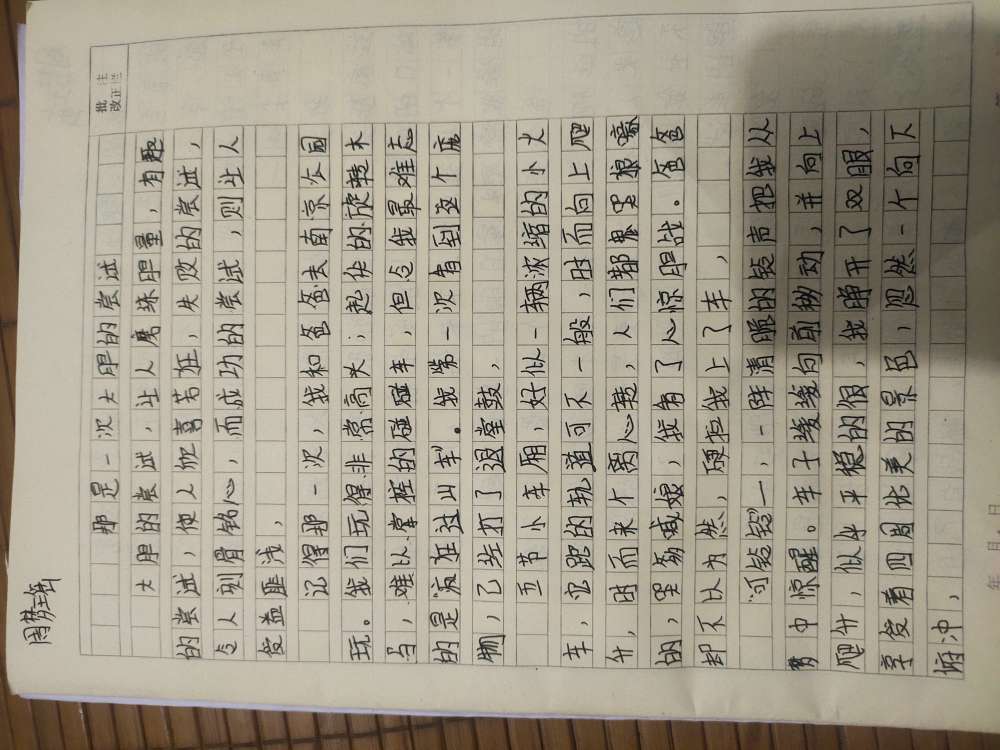 批注
改正栏
那是一次大胆的尝试
大胆的尝试，让人磨练胆量，有趣
的尝试，使人欣喜若狂，失败的尝试，
令人刻骨铭心，而成功的尝试，则让人
受益匪浅。
记得那一次，我和爸爸去南京公园
玩。我们玩得非常高兴；起伏的旋转木
马，难以掌控的碰碰车，但令我最难忘
的是疯狂过山车。我第一次看到这个庞
物，已经打了退堂鼓，
五节小车厢，好似一辆浓缩的小火
车，它距的轨道可不一般，时而向上爬
升，时而来个离心转，人们都鬼哭狼嚎
的，哭爹喊娘，我看了心惊胆战。爸爸
却不以为然，硬拉我上了车，
河铃铃——，一阵清脆的铃声把我从
梦中惊醒。车子缓缓向前移动，并向上
爬升，似乎平稳的很，我睁开了双眼，
享受着四周优美的景色，忽然一个向下
俯冲，
年 月 日